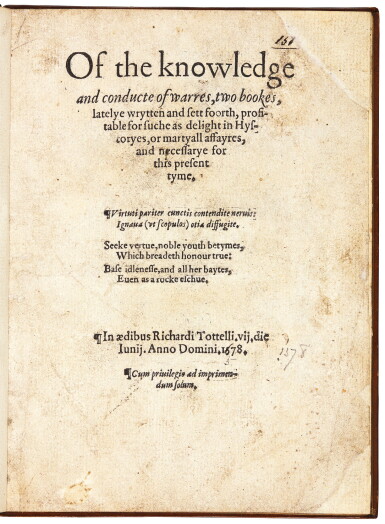 151
Of the knowledge
and conducte of warres, two bookes,
latelye wrytten and sett foorth, profi-
table for suche as delight in Hys-
toryes, or martyall affayres,
and necessarye for
this present
tyme.
¶Virtuti pariter cunctis contendite neruis:
Ignaua (vt scopulos) otia diffugite.
Seeke vertue, noble youth betymes,
Which breadeth honour true:
Base idlenesse, and all her baytes,
Euen as a rocke eschue.
¶In ædibus Richardi Tottelli. vij. die
Iunij. Anno Domini. 1678.
5
1578
¶Cum priuilegio ad imprimen-
dum solum.